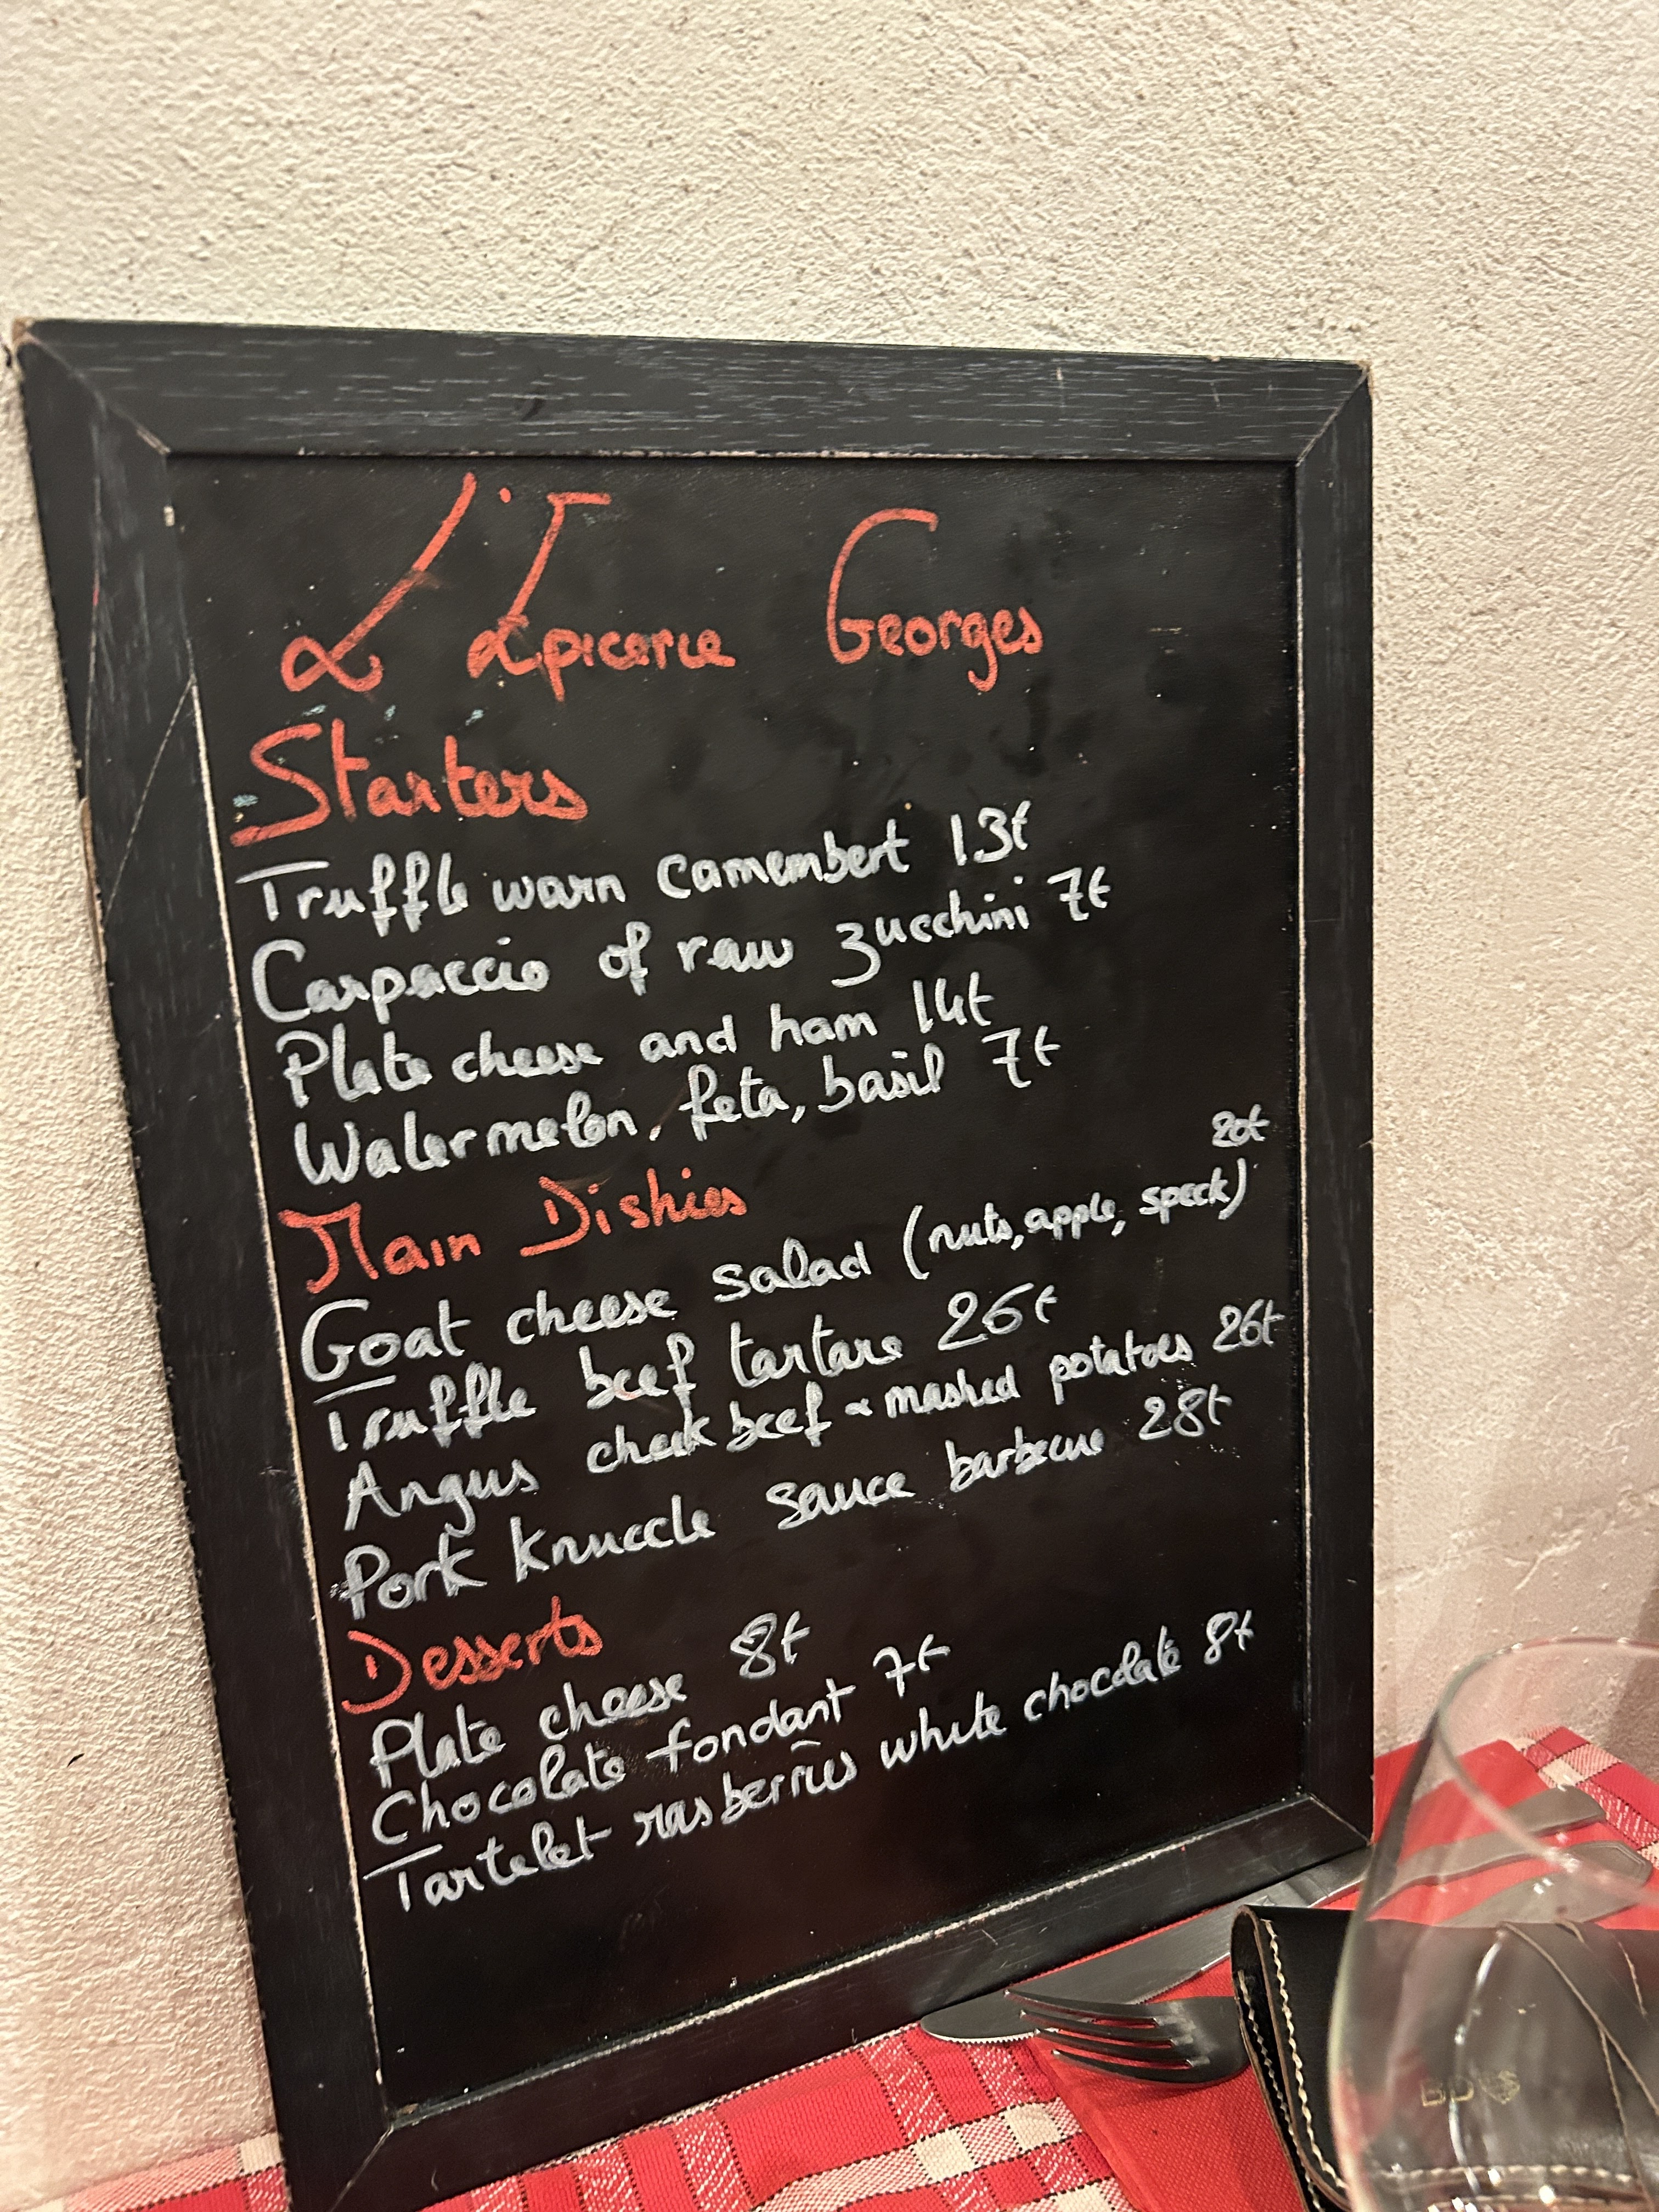 L'Epicerie Georges
Starters
Truffle warn camembert 13€
Carpaccio of raw zucchini 7€
Plate cheese and ham 14€
Watermelon, feta, basil 7€
Main Dishies
20€
Goat cheese salad (nuts, apple, speck)
Truffle beef tartare 26€
Angus cheek beef & mashed potatoes 26€
Pork knuccle sauce barbecue 28€
Desserts
Plate cheese 8€
Chocolate fondant 7€
Tartelet rasberries white chocolate 8€